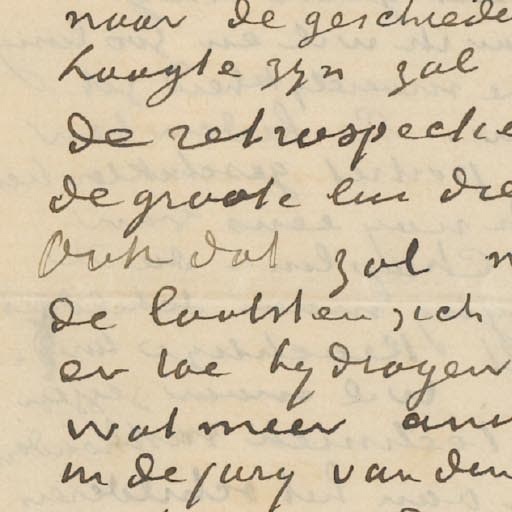 naar de geschiede
hoogte zyn zal
de retrospectie
de groote en die
Ook dat zal
de laatsten zich
er toe bydragen
wat meer
in de jury van den